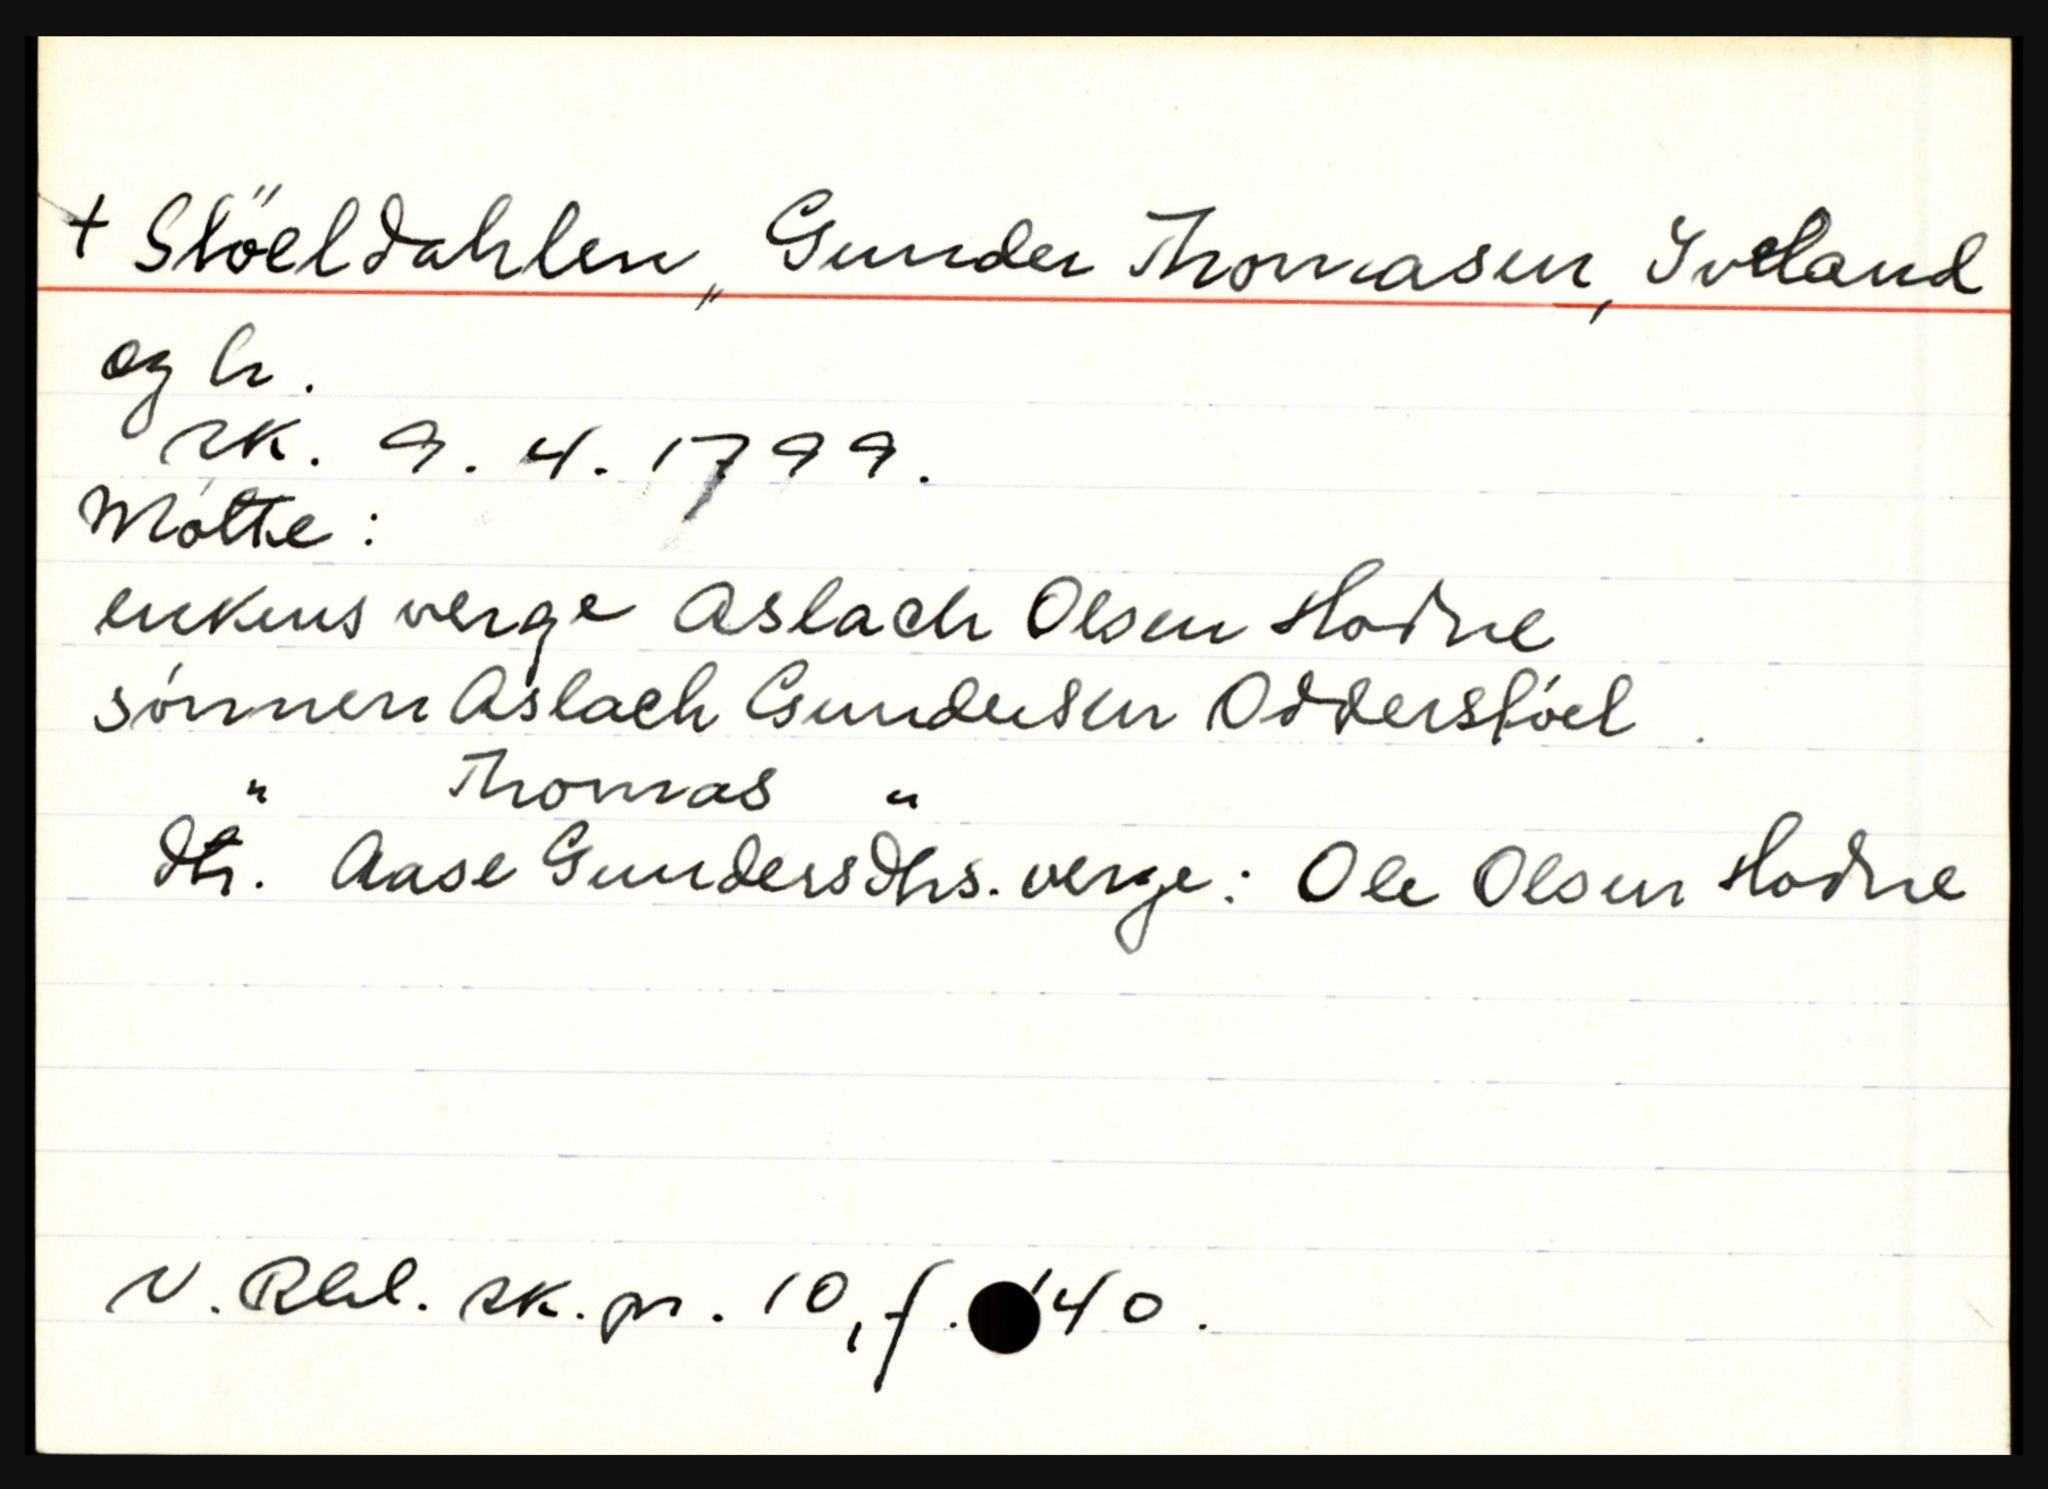 + Stöeldahlen„ Gunder Thomasen, Iveland
og h.
sk. 9. 4. 1799.
Møtte:
enkens verge Aslach Olsen Hodne
sønnen Aslach Gundersen Odderstøel.
" Thomas "
dtr. Aase Gundersdtrs. verge: Ole Olsen Hodne
N. Rbl. sk. pr. 10, f. 140.